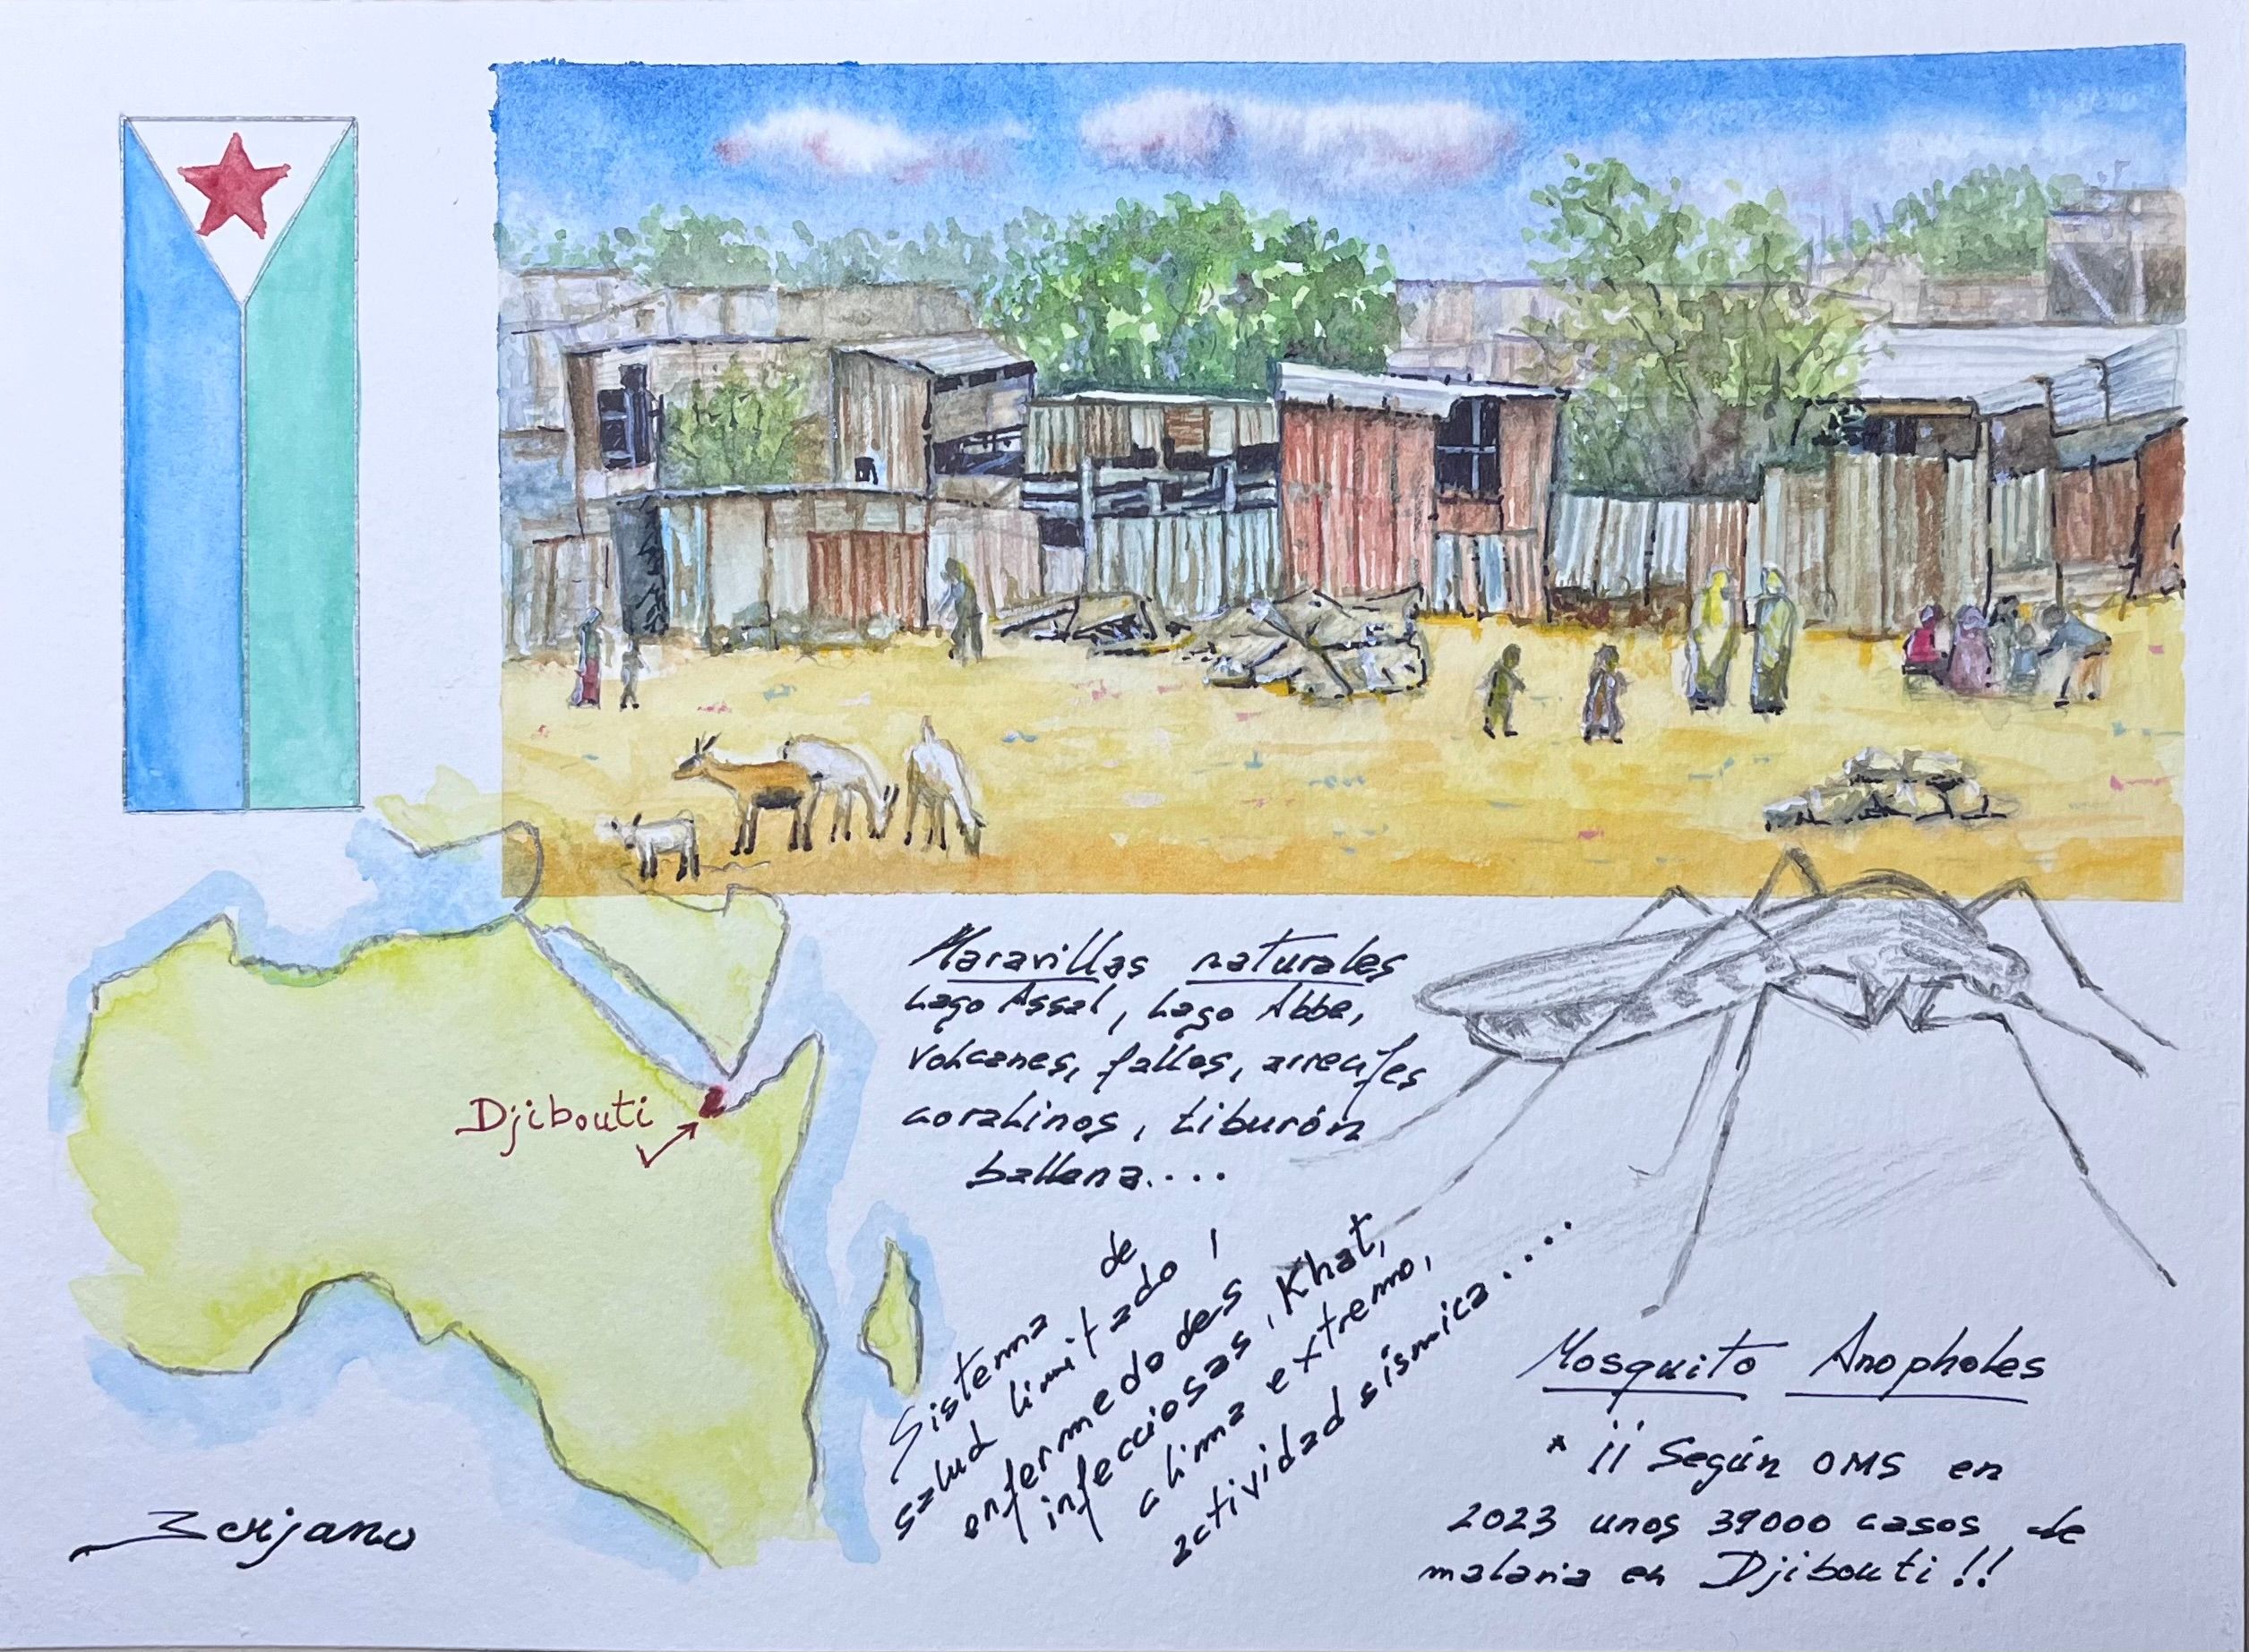 Maravillas naturales
Lago Assal, Lago Abbe,
volcanes, fallas, arrecifes
coralinos, tiburón
ballena....
Djibouti
Sistema de
salud limitado,
enfermedades
infecciosas, Khat,
clima extremo,
actividad sísmica....
Mosquito Anopheles
* ¡¡ Según OMS en
2023 unos 39000 casos de
malaria en Djibouti!!